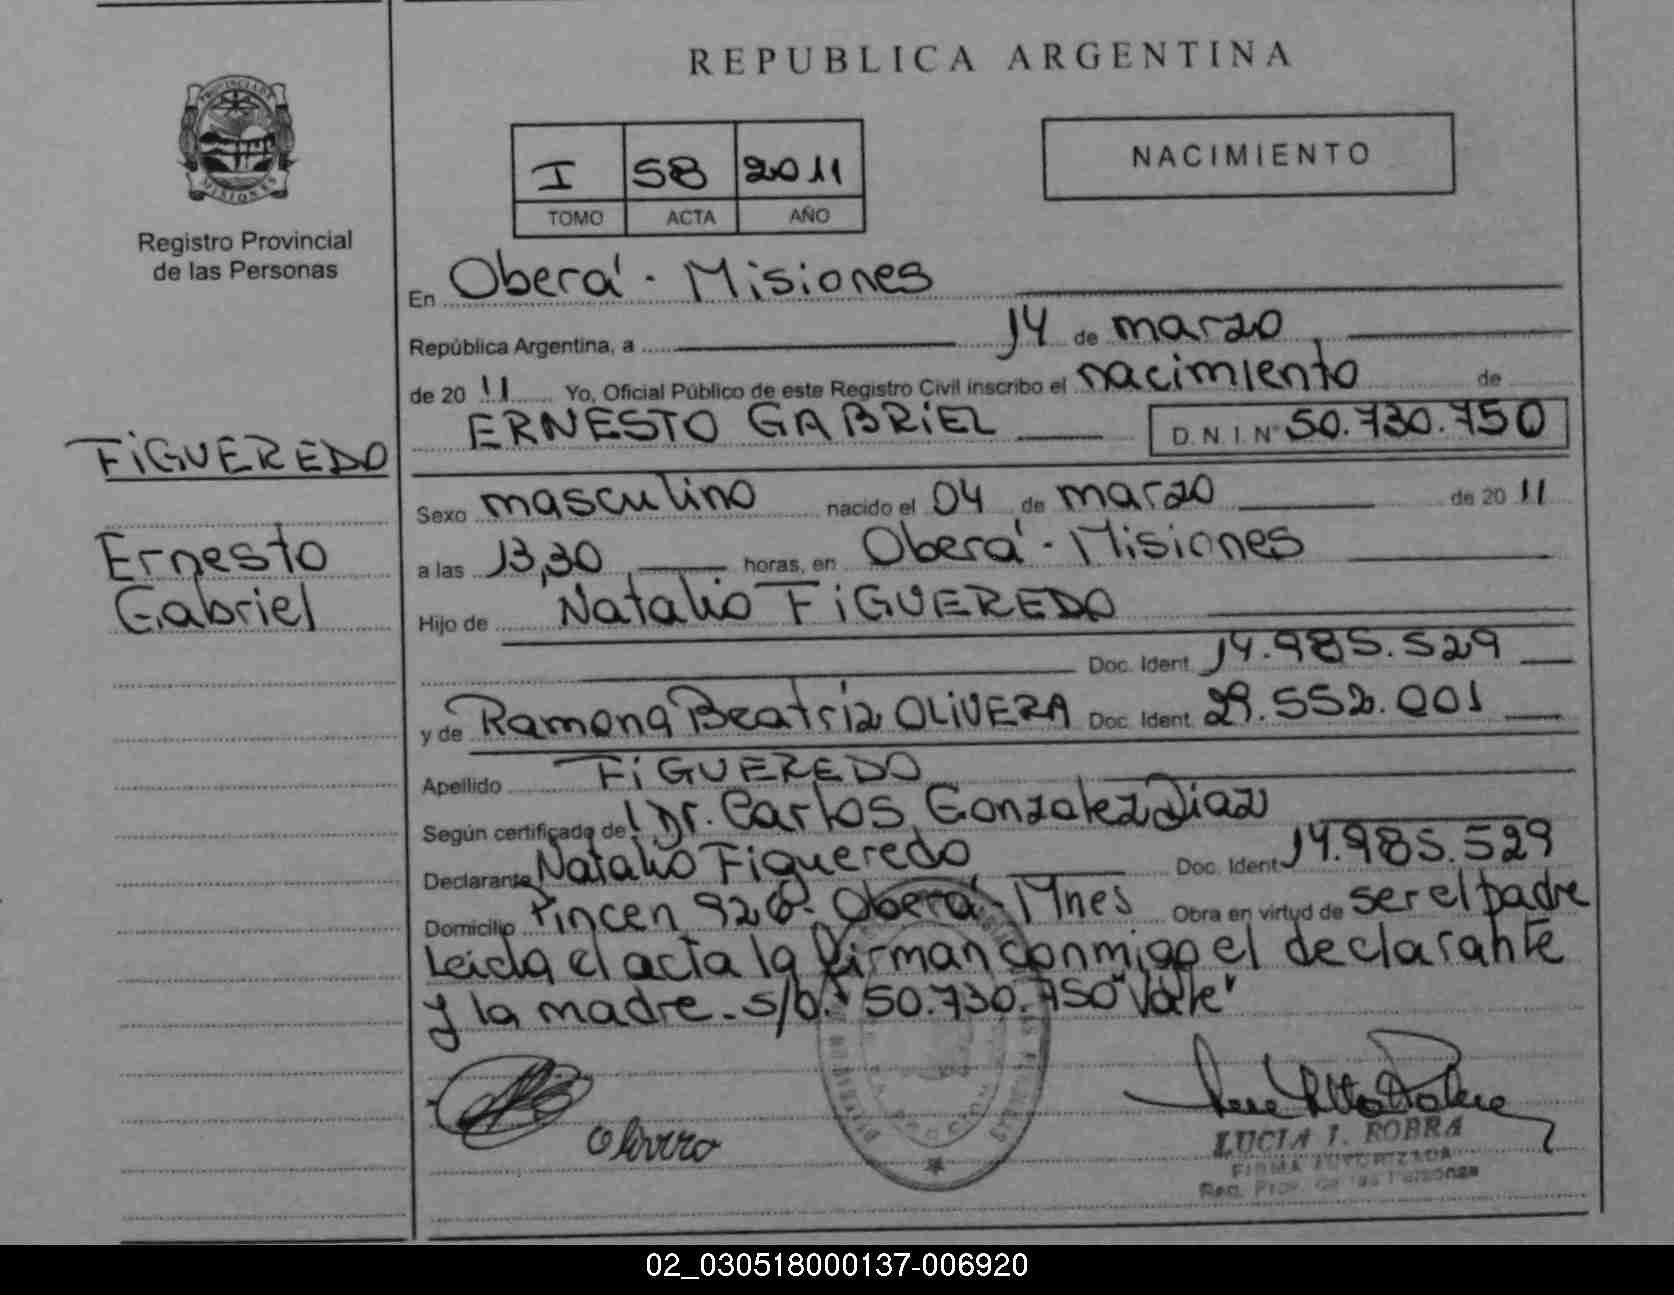 REPUBLICA ARGENTINA
PROVINCIA DE MISIONES
Registro Provincial
de las Personas
I 58 2011
TOMO ACTA AÑO
NACIMIENTO
En Oberá - Misiones
República Argentina, a 14 de marzo
de 20 11 Yo, Oficial Público de este Registro Civil inscribo el nacimiento de
ERNESTO GABRIEL D.N.I. Nº 50.730.750
FIGUEREDO
Ernesto
Gabriel
Sexo masculino nacido el 04 de marzo de 20 11
a las 13,30 horas, en Oberá - Misiones
Hijo de Natalio FIGUEREDO
Doc. Ident. 14.985.529
y de Ramona Beatriz OLIVERA Doc. Ident. 29.552.001
Apellido FIGUEREDO
Según certificado de l Dr. Carlos Gonzalez Diaz
Declarante Natalio Figueredo Doc. Ident. 14.985.529
Domicilio Pincen 926 - Oberá - Mnes Obra en virtud de ser el padre
Leida el acta la firman conmigo el declarante
y la madre. s/b. "50.730.750" Vale"
LUCIA I. ROBRA
FIRMA AUTORIZADA
Reg. Prov. de las Personas
02_030518000137-006920